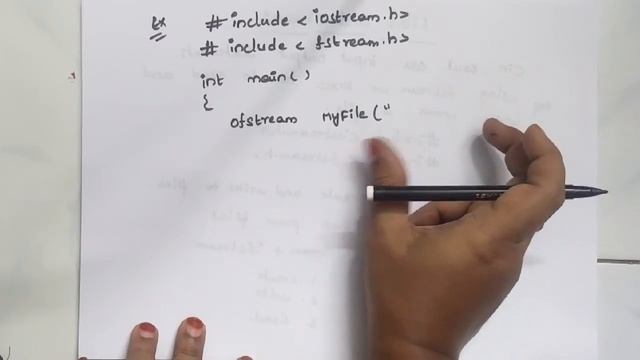 Ex #include < iostream.h>
# include < fstream.h>
int main()
{
ofstream MyFile("